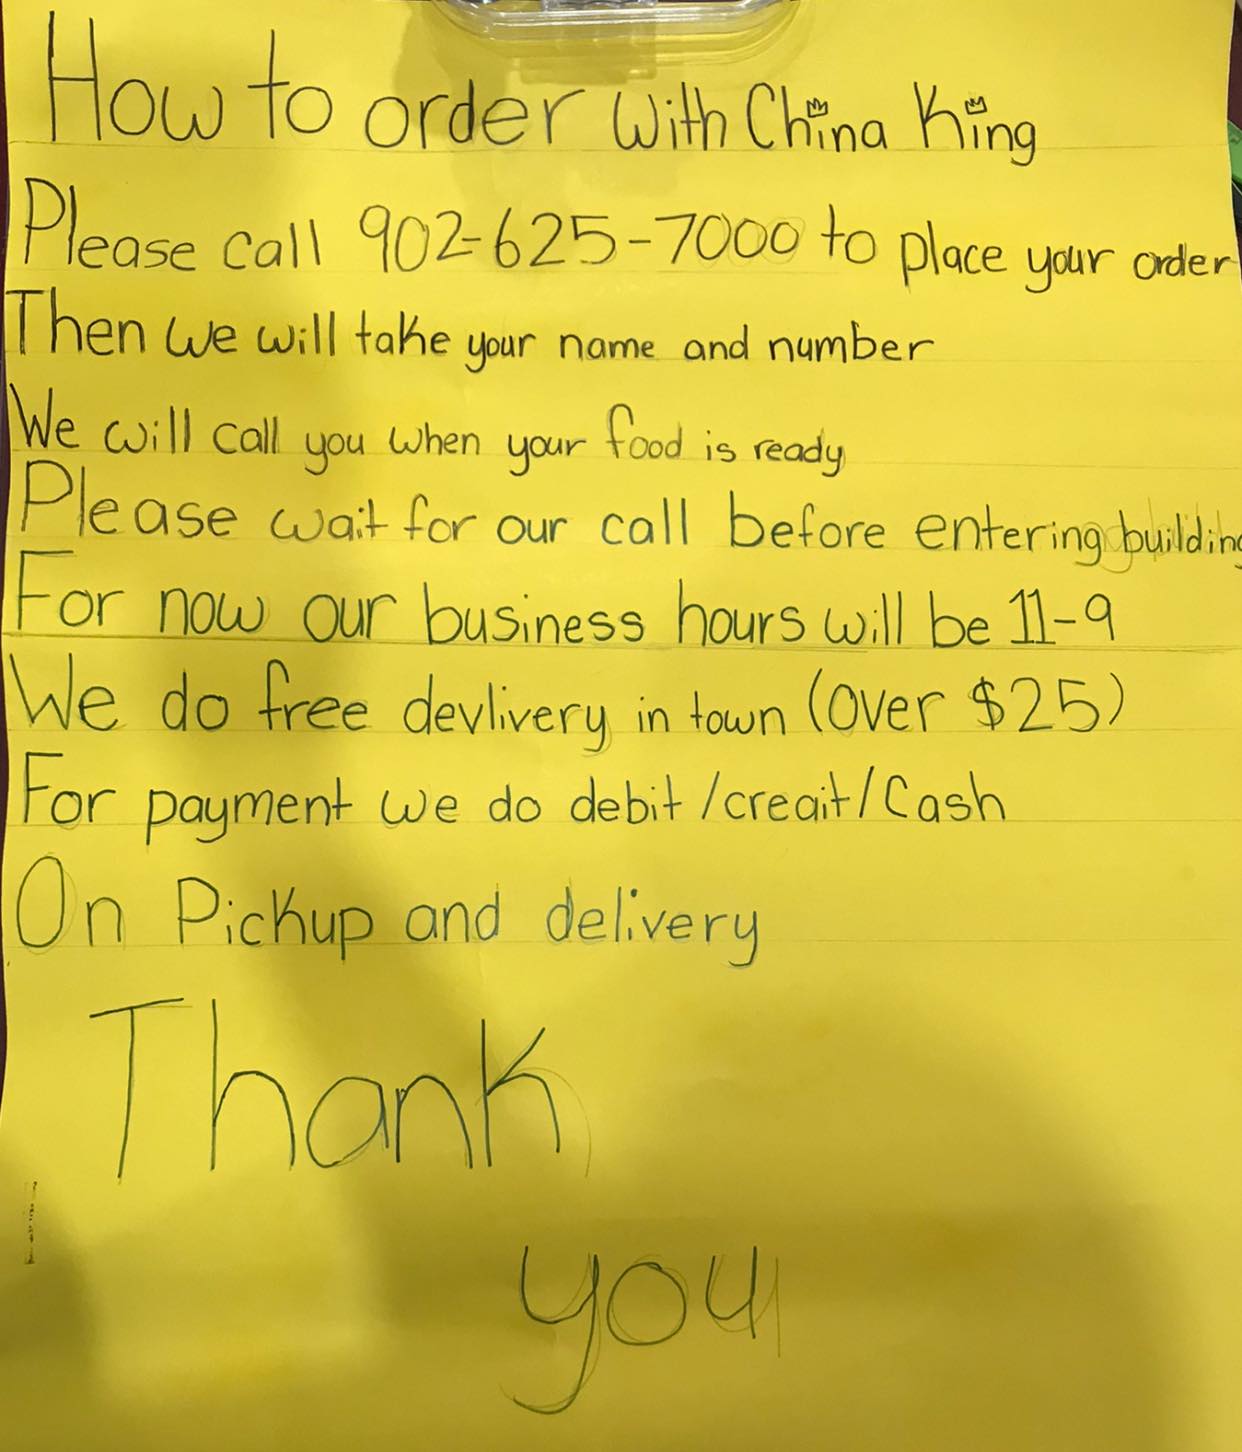 How to order with China King
Please call 902-625-7000 to place your order
Then we will take your name and number
We will call you when your food is ready
Please wait for our call before entering building
For now our business hours will be 11-9
We do free devlivery in town (over $25)
For payment we do debit/creait/Cash
On Pickup and delivery
Thank
you